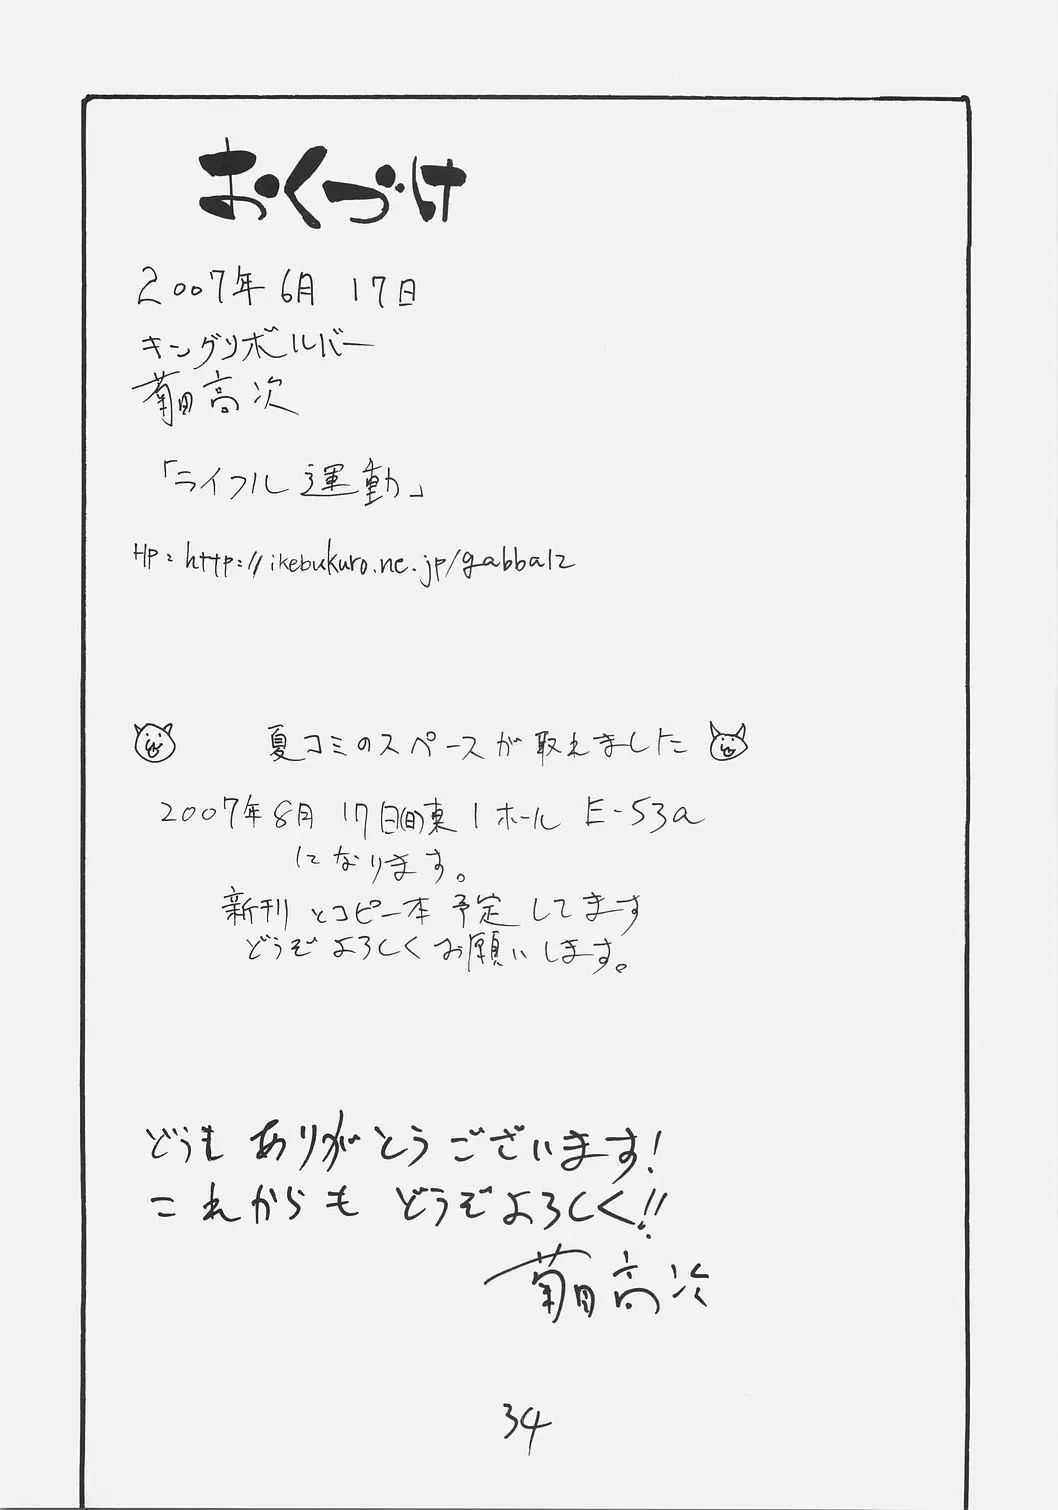 おくづけ
2007年6月 17日
キングリボルバー
菊田高次
「ライフル運動」
HP: http://ikebukuro.ne.jp/gabbalz
夏コミのスペースが取れました
2007年8月 17日(金)東1ホール E-53a
になります。
新刊とコピー本 予定してます
どうぞよろしくお願いします。
どうも ありがとうございます!
これからも どうぞよろしく!!
菊田高次
34